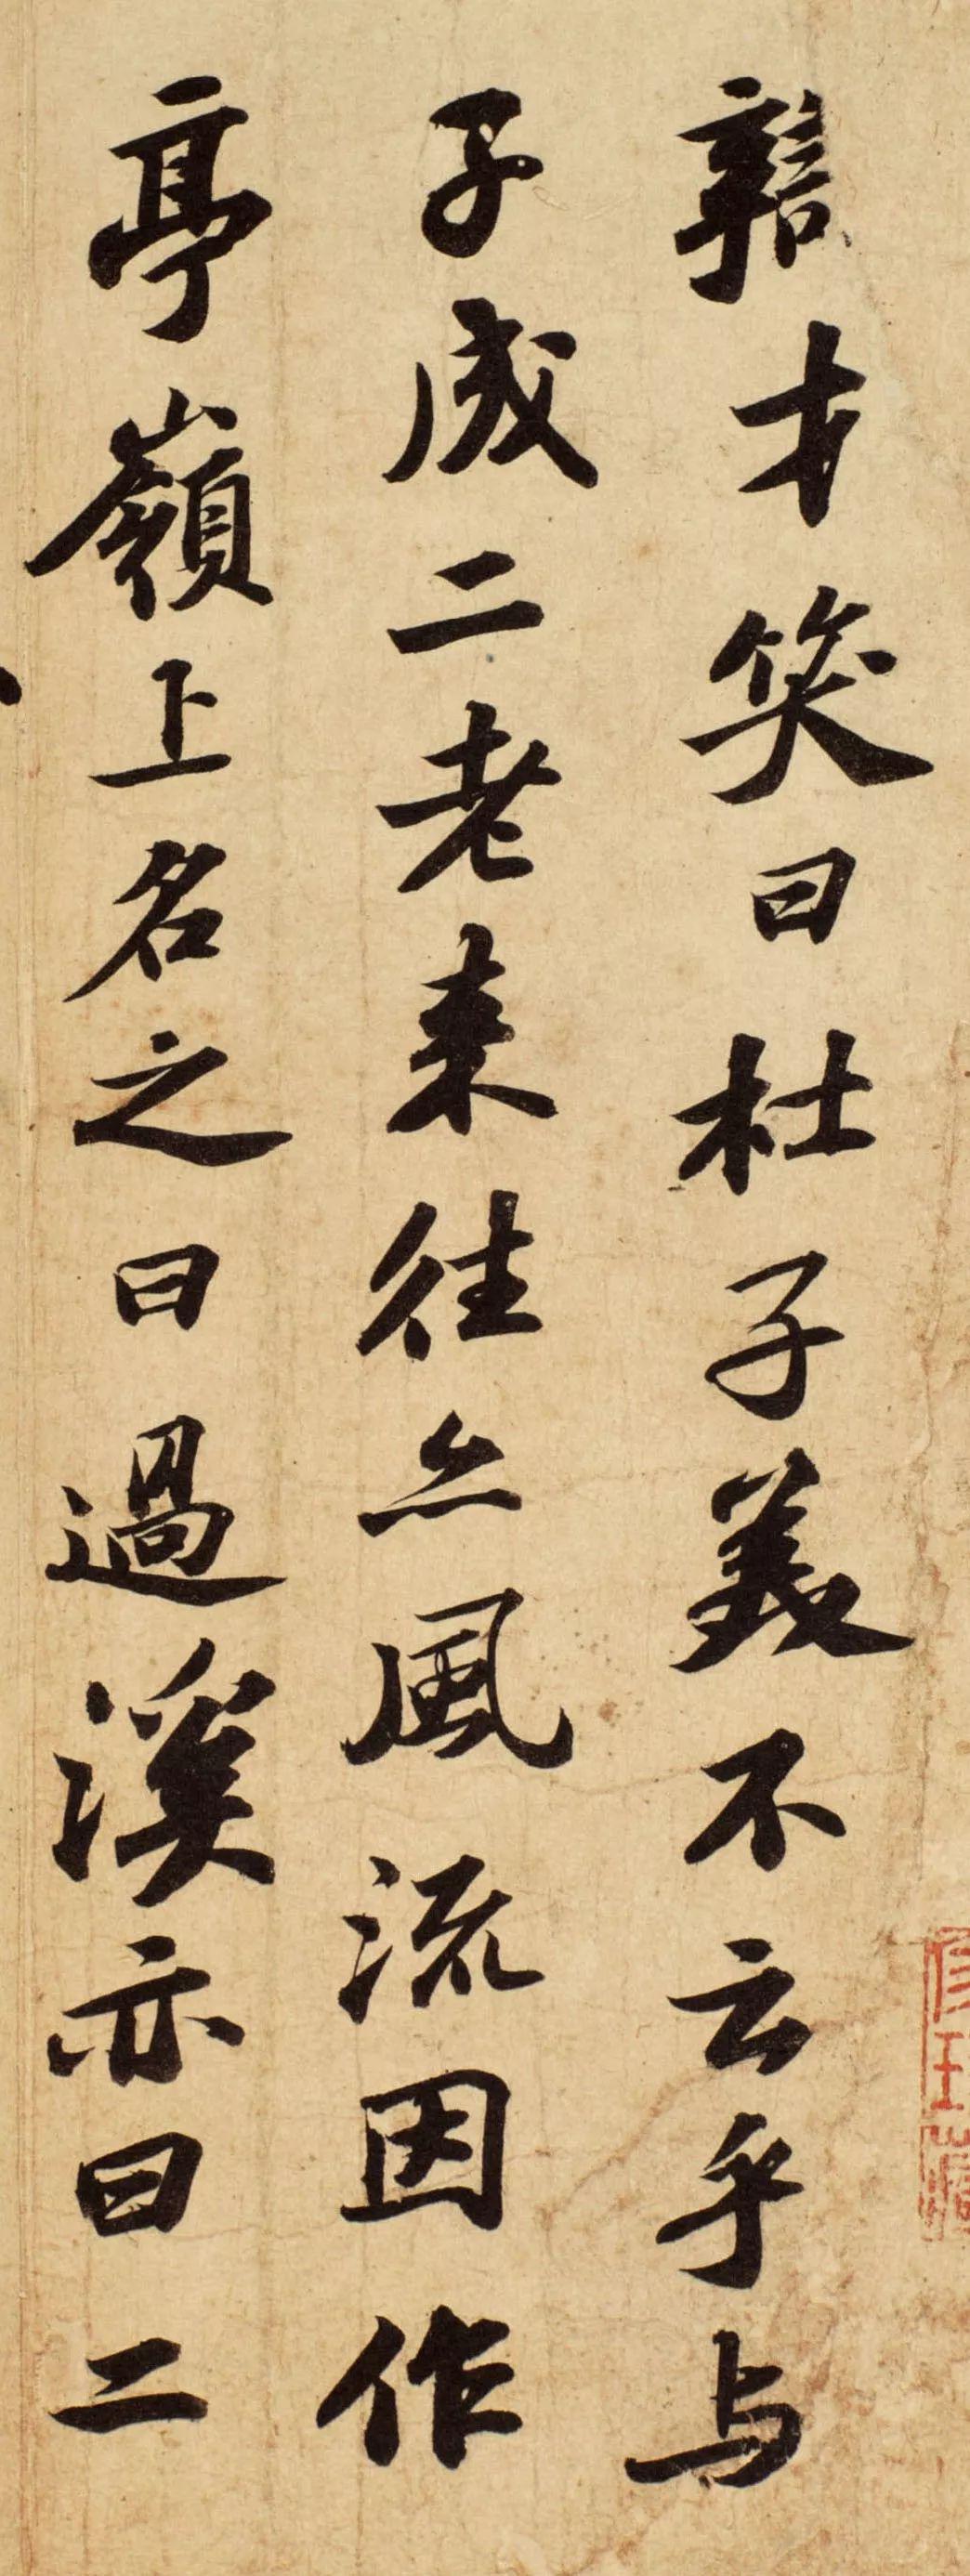 辯才笑曰杜子美不云乎与
子成二老来往亦風流因作
亭嶺上名之曰過溪亦曰二